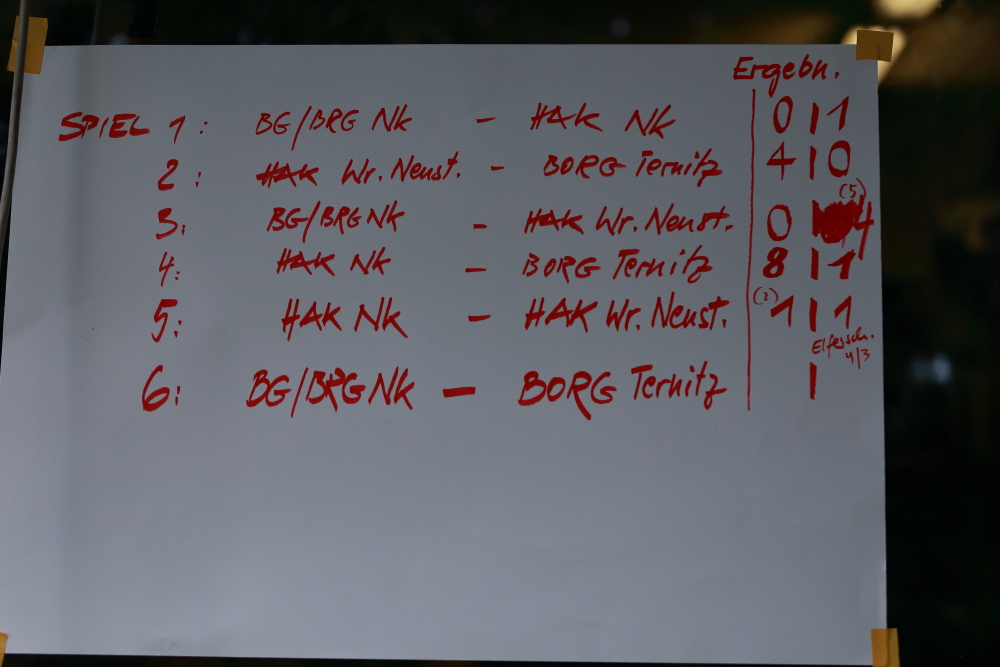 Ergebn.
SPIEL 1: BG/BRG NK - HAK NK 0 | 1
2: HAK Wr. Neust. - BORG Ternitz 4 | 0
(5)
3: BG/BRG NK - HAK Wr. Neust. 0 | 4
4: HAK NK - BORG Ternitz 8 | 1
5: HAK NK - HAK Wr. Neust. (2) 1 | 1
Elfersch.
4/3
6: BG/BRG NK - BORG Ternitz |